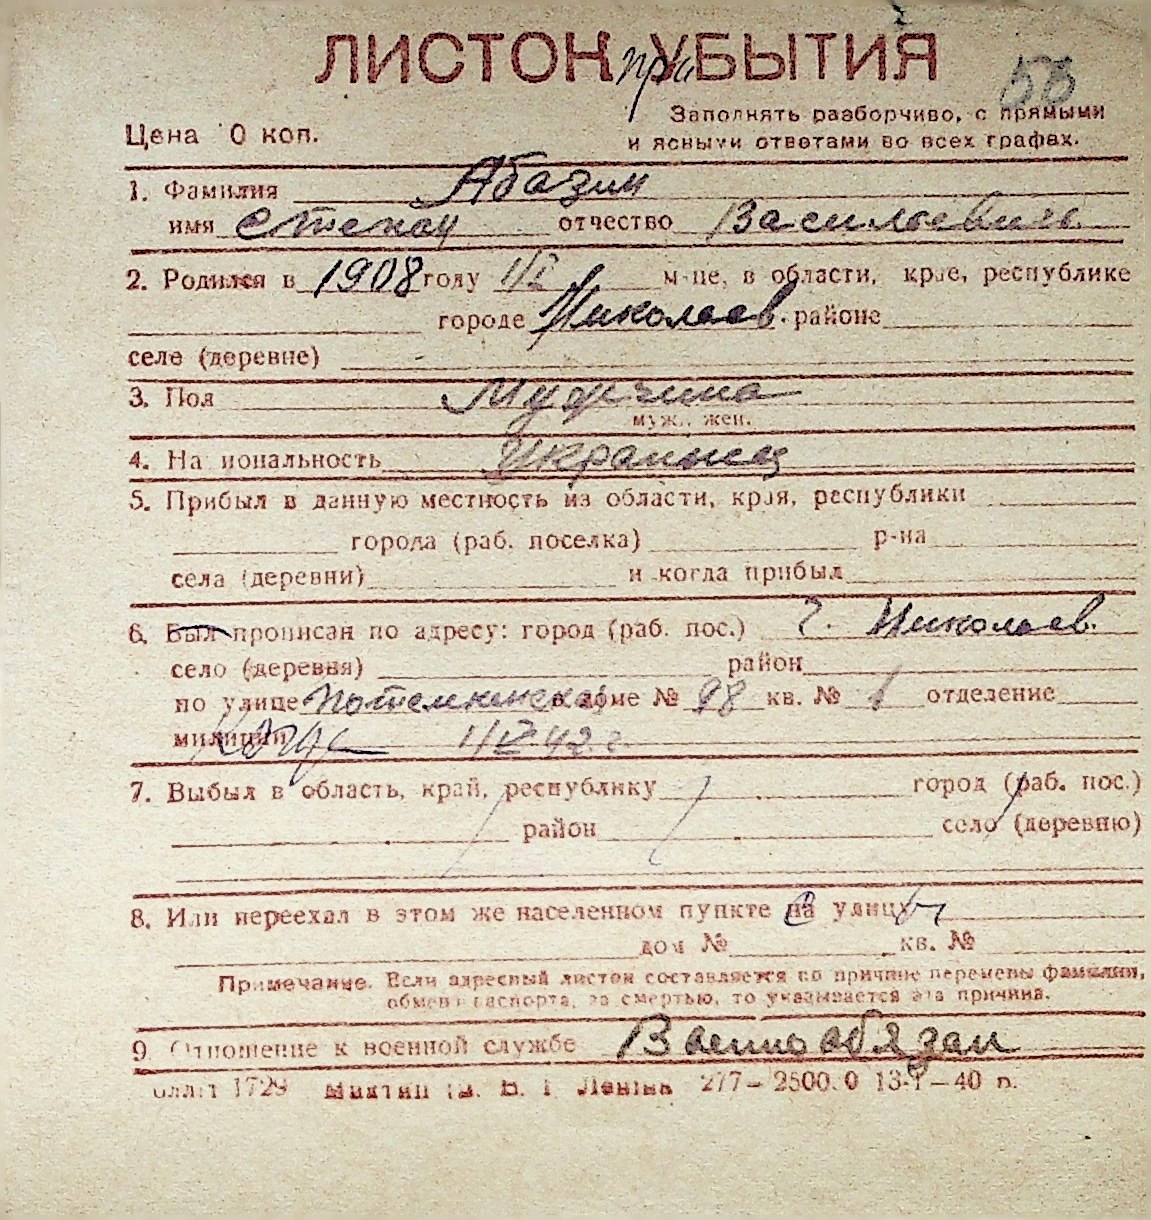 ЛИСТОК при УБЫТИЯ
53
Заполнять разборчиво, с прямыми
Цена 10 коп.
и ясными ответами во всех графах.
1. Фамилия Абазин
имя Степан отчество Васильевич
2. Родился в 1908 году 1/V м-це, в области, крае, республике
городе Николаев. районе
селе (деревне)
3. Пол Мужчина
муж., жен.
4. Национальность Украинец
5. Прибыл в данную местность из области, края, республики
города (раб. поселка) р-на
села (деревни) и когда прибыл
6. Был прописан по адресу: город (раб. пос.) г. Николаев.
село (деревня) район
по улице Потемкинская в доме № 98 кв. № 1 отделение
милиции 42 г.
7. Выбыл в область, край, республику город (раб. пос.)
район село (деревню)
8. Или переехал в этом же населенном пункте на улицу
дом № кв. №
Примечание. Если адресный листок составляется по причине перемены фамилии,
обмена паспорта, за смертью, то указывается эта причина.
9. Отношение к военной службе Военнообязан
1729 Ленина 277—2500.0 13-V—40 р.